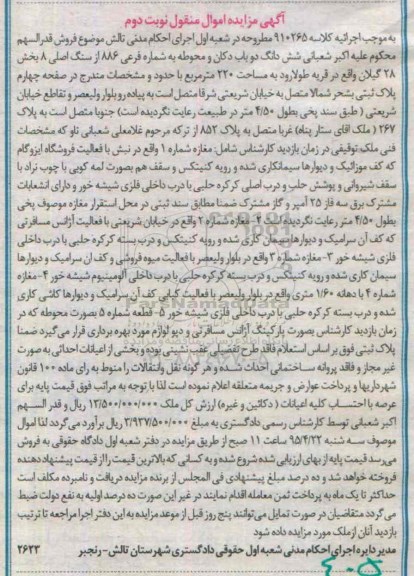 آگهی مزایده اموال منقول نوبت دوم
به موجب اجرائیه کلاسه ۹۱۰۲۶۵ مطروحه در شعبه اول اجرای احکام مدنی تالش موضوع فروش قدرالسهم
محکوم علیه اکبر شعبانی شش دانگ دو باب دکان و محوطه به شماره فرعی ۸۸۶ از سنگ اصلی ۸ بخش
۲۸ گیلان واقع در قریه طولارود به مساحت ۲۲۰ مترمربع با حدود و مشخصات مندرج در صفحه چهارم
پلاک ثبتی بشرح شمالا متصل به خیابان شریعتی شرقا متصل است به پیاده رو بلوار ولیعصر و تقاطع خیابان
شریعتی ( طبق سند پخی بطول ۴/۵۰ متر در طبیعت رعایت نگردیده است) جنوبا متصل است به پلاک
۲۶۷ ( ملک آقای ستار پناه) غربا متصل به پلاک ۸۵۲ از ترکه مرحوم غلامعلی شعبانی ناو که مشخصات
فنی ملک توقیفی در زمان بازدید کارشناس شامل: مغازه شماره ۱ واقع در نبش با فعالیت فروشگاه ایزوگام
که کف موزائیک و دیوارها سیمانکاری شده و رویه کنیتکس و سقف هم بصورت لمه کوبی با چوب نراد با
سقف شیروانی و پوشش حلب و درب اصلی کرکره حلبی با درب داخلی فلزی شیشه خور و دارای انشعابات
مشترک برق سه فاز ۲۵ آمپر و گاز مشترک ضمنا مطابق سند ثبتی در محل استقرار مغازه موصوف پخی
بطول ۴/۵۰ متر رعایت نگردیده است ۲- مغازه شماره ۲ واقع در خیابان شریعتی با فعالیت آژانس مسافرتی
که کف آن سرامیک و دیوارها سیمان کاری شده و رویه کنیتکس و درب بسته کرکره حلبی با درب داخلی
فلزی شیشه خور ۳- مغازه شماره ۳ واقع در بلوار ولیعصر با فعالیت میوه فروشی و کف آن سرامیک و دیوارها
سیمان کاری شده و رویه کنیتکس و درب بسته کرکره حلبی با درب داخلی آلومینیوم شیشه خور ۴- مغازه
شماره ۴ با دهانه ۱/۶۰ متری واقع در بلوار ولیعصر با فعالیت کبابی کف آن سرامیک و دیوارها کاشی کاری
شده و درب بسته کرکره حلبی با درب داخلی فلزی شیشه خور ۵- قطعه شماره ۵ بصورت محوطه که در
زمان بازدید کارشناس بصورت پارکینگ آژانس مسافرتی و دپو لوازم مورد بهره برداری قرار می‌گیرد ضمنا
پلاک ثبتی فوق بر اساس استعلام فاقد طرح تفصیلی عقب نشینی بوده و بخشی از اعیانات احداثی به صورت
غیر مجاز و فاقد پروانه ساختمانی احداث شده و هر گونه نقل و انتقالات را منوط به رای ماده ۱۰۰ قانون
شهرداریها و پرداخت عوارض و جریمه متعلقه اعلام نموده است لذا با توجه به مراتب فوق قیمت پایه برای
عرصه با احتساب کلیه اعیانات ( دکائین و غیره) ارزش کل ملک ۱۳/۵۰۰/۰۰۰/۰۰۰ ریال و قدر السهم
اکبر شعبانی توسط کارشناس رسمی دادگستری به مبلغ ۳/۹۳۷/۵۰۰/۰۰۰ ریال برآورد می گردد لذا اموال
موصوف سه شنبه ۹۵/۴/۲۲ ساعت ۱۱ صبح از طریق مزایده در دفتر شعبه اول دادگاه حقوقی به فروش
می‌رسد قیمت پایه از بهای ارزیابی شده شروع شده و به کسانی که بالاترین قیمت را از قیمت پیشنهاد دهنده
فروخته خواهد شد و ده درصد مبلغ پیشنهادی فی المجلس از برنده مزایده دریافت و نامبرده مکلف است
حداکثر تا یک ماه به پرداخت ثمن معامله اقدام نمایند در غیر این صورت ده درصد اولیه به نفع دولت ضبط
می گردد متقاضیان در صورت تمایل می‌توانند پنج روز قبل از موعد مزایده به این دفتر اجرا مراجعه تا ترتیب
بازدید آنان از ملک مورد مزایده داده شود
مدیر دایره اجرای احکام مدنی شعبه اول حقوقی دادگستری شهرستان تالش - رنجبر ۲۶۲۳